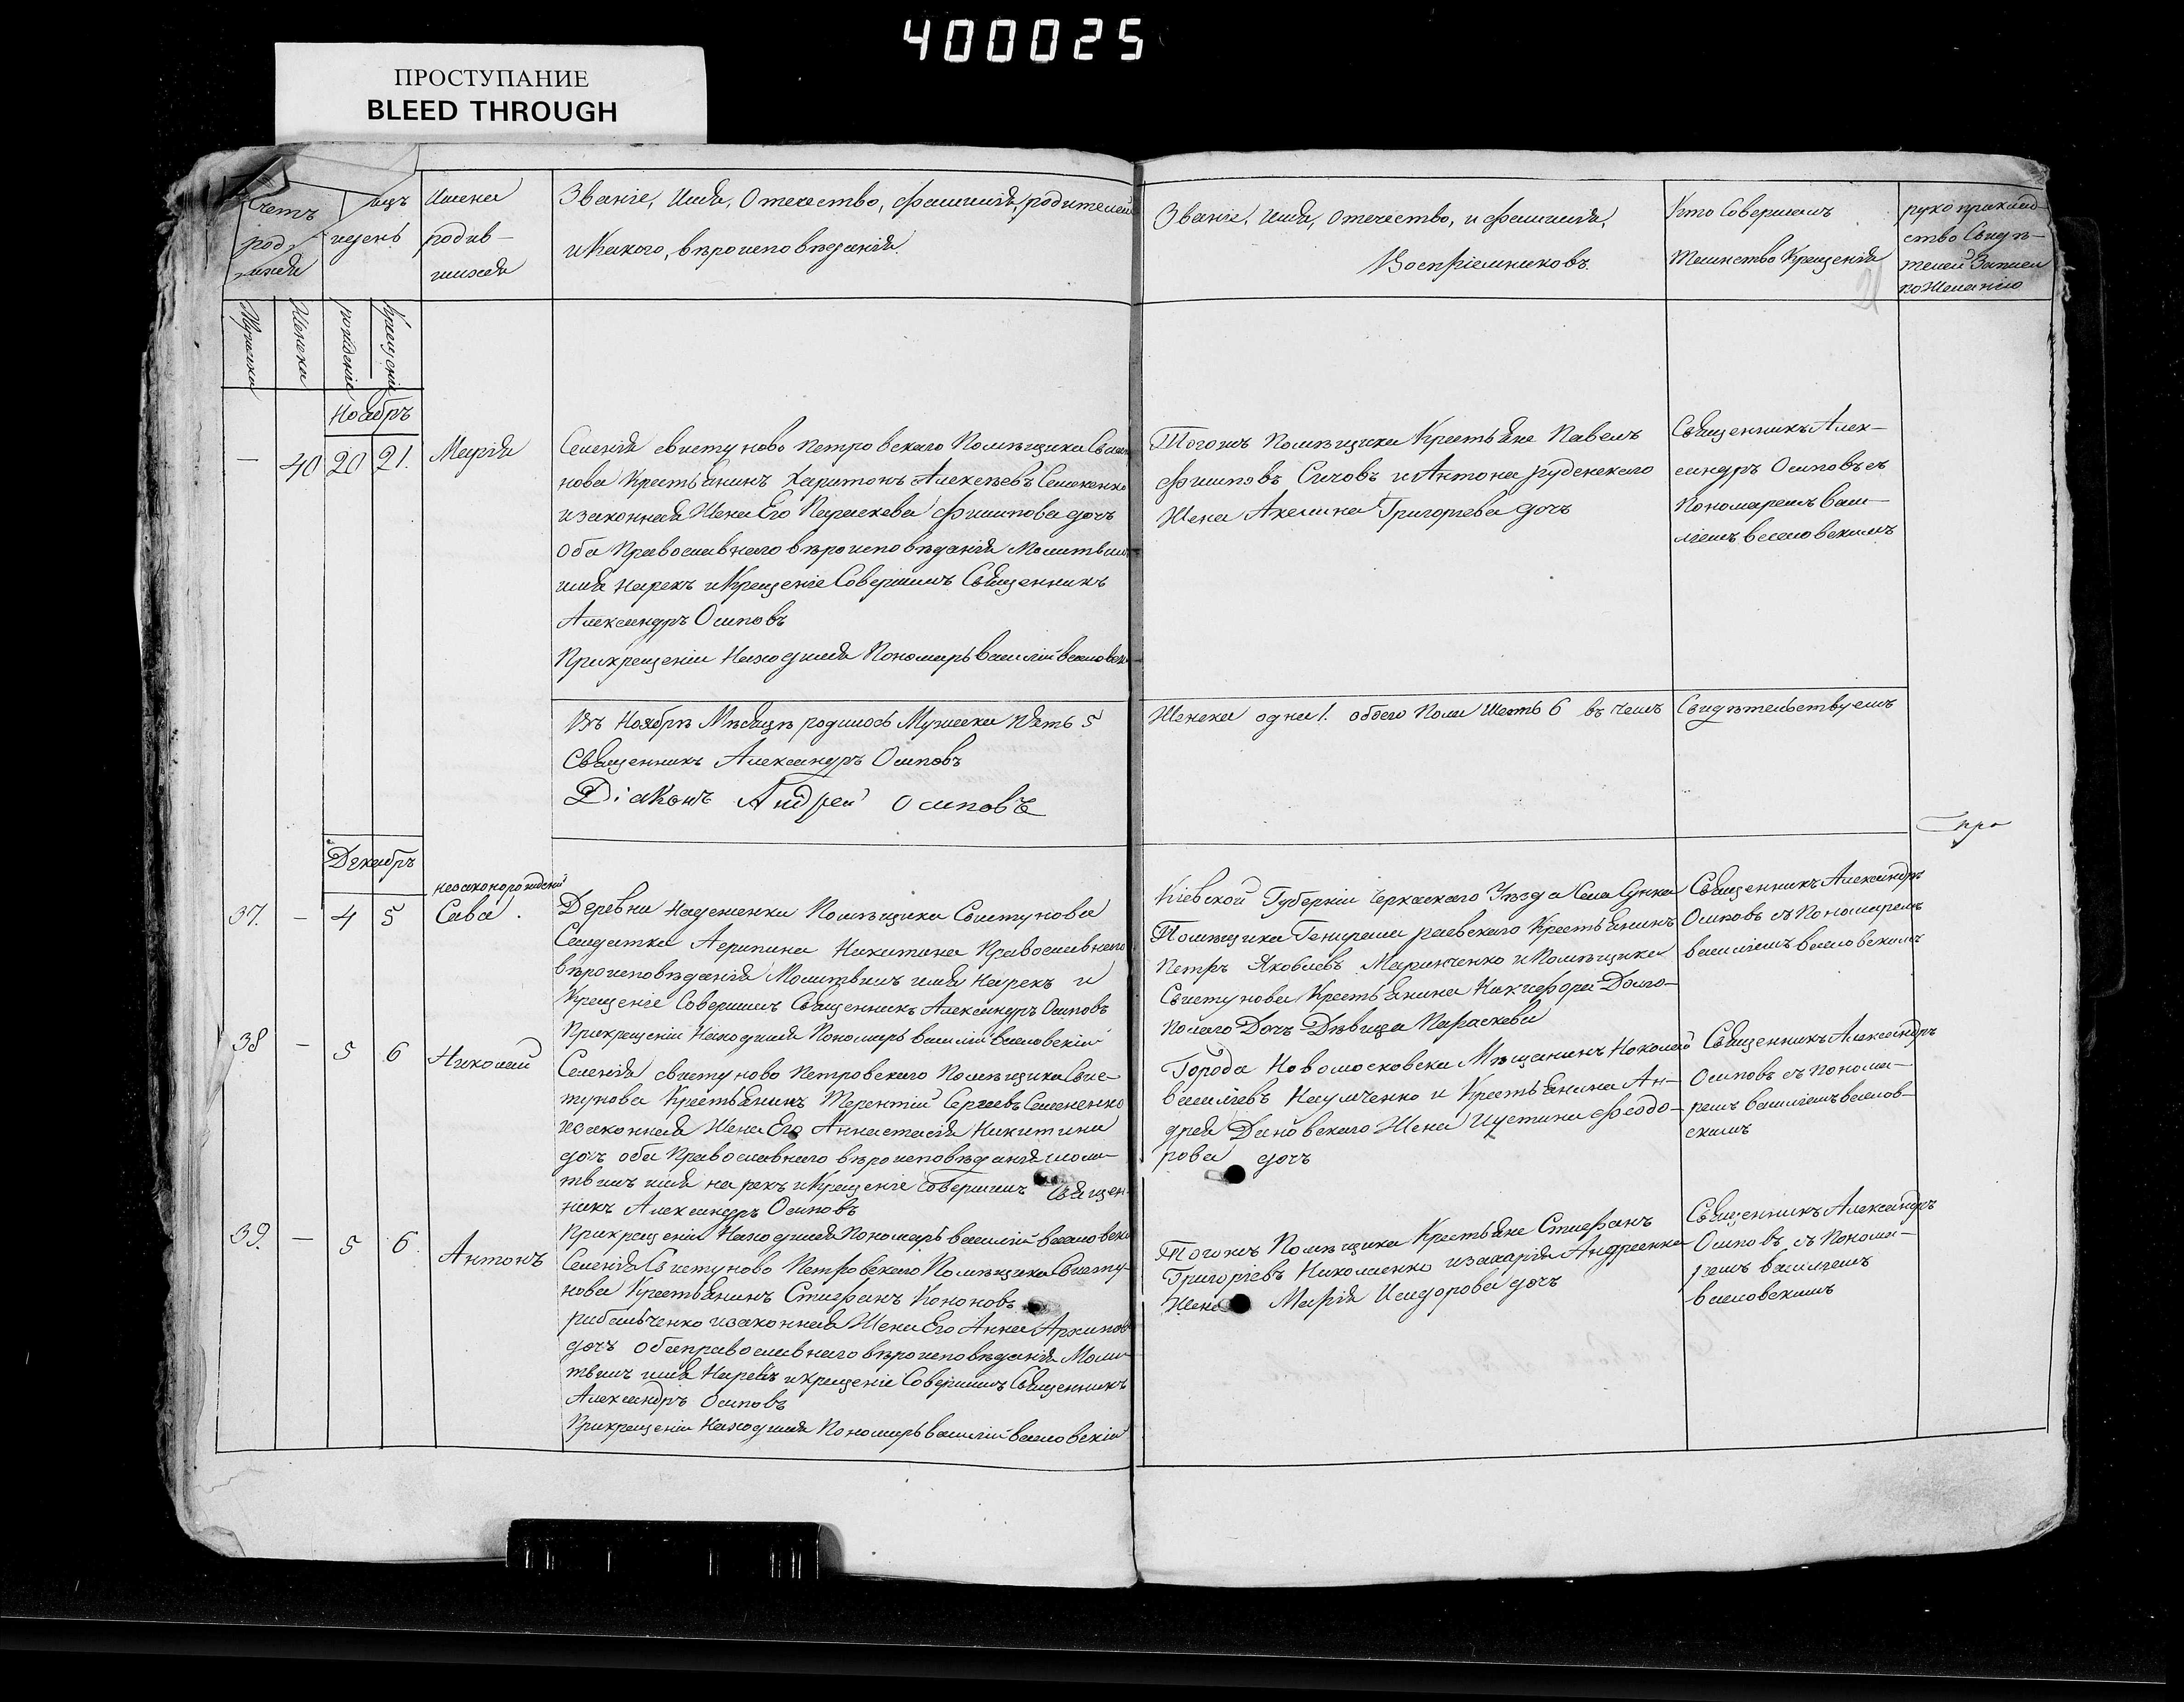 400025
ПРОСТУПАНИЕ
BLEED THROUGH
Счетъ
род
шихся
мцъ
идень
Имена
родив-
шихся
Званіе, Имя, Отечество, Фамилія, родителей
иКакого, вѣроисповѣданія.
Званіе, Имя, отечество, и фамилія,
Воспріемниковъ.
Кто Совершалъ
Таинство Крещенія
рукоприклад-
ство Свидѣ-
телей Записи
поЖеланію
Мужеска
Женска
рожденіе
Крещеніе
Ноябръ
— 40 20 21. Марія
Селенія свистуново Петровскаго Помѣщика Свисту
нова Крестьянинъ Харитонъ Алексѣевъ Семененко
изаконная Жена Его Параскева Филипова дочъ
Оба Православнаго вѣроисповѣданія Молитвилъ
имя нарекъ иКрещеніе Совершилъ Священникъ
Александръ Осиповъ
Прикрещеніи Находился Пономаръ василій
Тогожъ Помѣщика Крестьяне Павелъ
Филиповъ Сичовъ иАнтона руденскаго
Жена Акелина Григоріева дочъ
СвященникъАлек-
сандръ Осиповъ съ
Пономаремъ васи-
ліемъ
Въ Ноябрѣ Мѣсяцѣ родилось Мужеска Пять 5
Священникъ Александръ Осиповъ
Діаконъ Андрей Осиповъ
Женска одна 1. обоего Пола Шесть 6 въ чемъ Свидѣтельствуемъ
Декабръ
про
37. — 4 5
незаконорожденій
Сава.
Деревни Надеженки Помѣщика Свистунова
Салдатка Агрипина Никитина Православнаго
вѣроисповѣданія Молитвилъ имя Нарекъ и
Крещеніе Совершилъ Священникъ Александръ Осиповъ
Прикрещеніи Находился Пономаръ василій
Кіевской Губерніи Черкаскаго Уѣзда Села Сунки
Помѣщика Генирала раевскаго Крестьянинъ
Петръ Яковлевъ Маринченко иПомѣщика
Свистунова Крестьянина Никифора Долго-
полаго Дочъ Дѣвица Параскева
Священникъ Александръ
Осиповъ съ Пономаремъ
василіемъ
38 — 5 6 Николай
Селенія свистуново Петровскаго Помѣщика Свис-
тунова Крестьянинъ Терентій Сергѣевъ Семененко
изаконная Жена Его Анастасія Никитина
дочъ оба Православнаго вѣроисповѣданія моли-
твилъ имя нарекъ иКрещеніе Совершилъ Священ-
никъ Александръ Осиповъ
Прикрещеніи Находился Пономаръ василій
Города Новомосковска Мѣщанинъ Николай
василіевъ Наумченко и Крестьянина Ан-
дрея Дановскаго Жена Иустина Феодо-
рова дочъ
Священникъ Александръ
Осиповъ съ понома-
ремъ василіемъ
39. — 5 6. Антонъ
Селенія Свистуново Петровскаго Помѣщика Свисту-
нова Крестьянинъ Стиефанъ Кононовъ
рибальченко изаконная Жена Его Анна Архипова
дочъ обаправославнаго вѣроисповѣданія Моли-
твилъ имя Нарекъ икрещеніе Совершилъ Священникъ
Александръ Осиповъ
Прикрещеніи Находился Пономаръ василій
Тогожъ Помѣщика Крестьяне Стиефанъ
Григоріевъ Николаенко изахарія Андреенка
Жена Марія Исидорова дочъ
Священникъ Александръ
Осиповъ съ Понома-
ремъ василіемъ